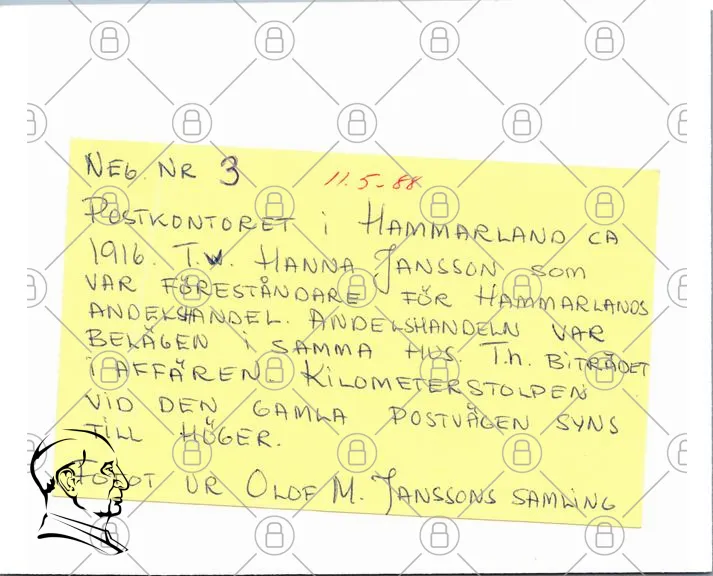 NEG. NR 3 11.5-88
POSTKONTORET i HAMMARLAND CA
1916. T.V. HANNA JANSSON SOM
VAR FÖRESTÅNDARE FÖR HAMMARLANDS
ANDELSHANDEL. ANDELSHANDELN VAR
BELÄGEN i SAMMA HUS. T.h. BITRÄDET
i AFFÄREN. KILOMETERSTOLPEN
VID DEN GAMLA POSTVÄGEN SYNS
TILL HÖGER.
FOTOT UR OLOF M. JANSSONS SAMLING